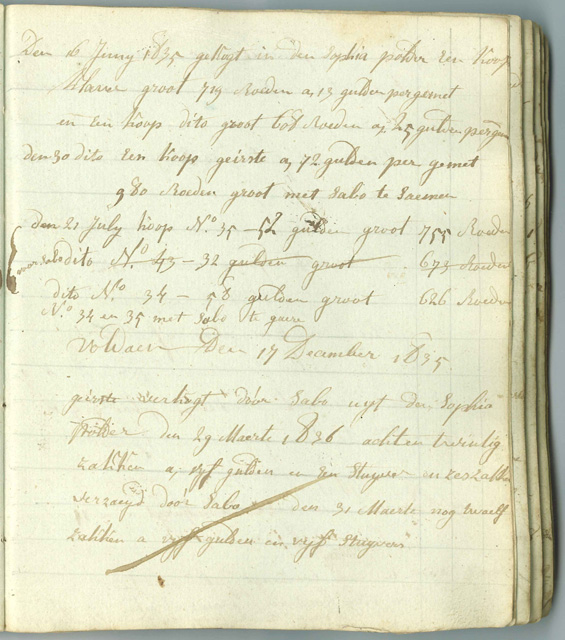 Den 16 Juny 1835 gekogt in den Sophia polder Een koop
klaver groot 719 Roeden a 13 gulden per gemet
en Een koop dito groot 608 Roeden a 25 gulden per gem
den 30 dito Een koop geirste a 72 gulden per gemet
380 Roeden groot met Sabo te Saemen
den 21 July koop No 35 - 52 gulden groot 755 Roeden
voor Sabo dito No 43 - 32 gulden groot 673 Roeden
dito No 34 - 58 gulden groot 626 Roeden
No 34 en 35 met Sabo te gaere
voldaen Den 17 December 1835
geirste door Sabo uyt den Sophia
Polder den 29 Maerte 1836 acht en twintig
zakken a vyf gulden en Een Stuyver en zes zakken
verzaeyd door Sabo den 31 Maerte nog twaelf
zakken a vyf gulden en vyf Stuyvers